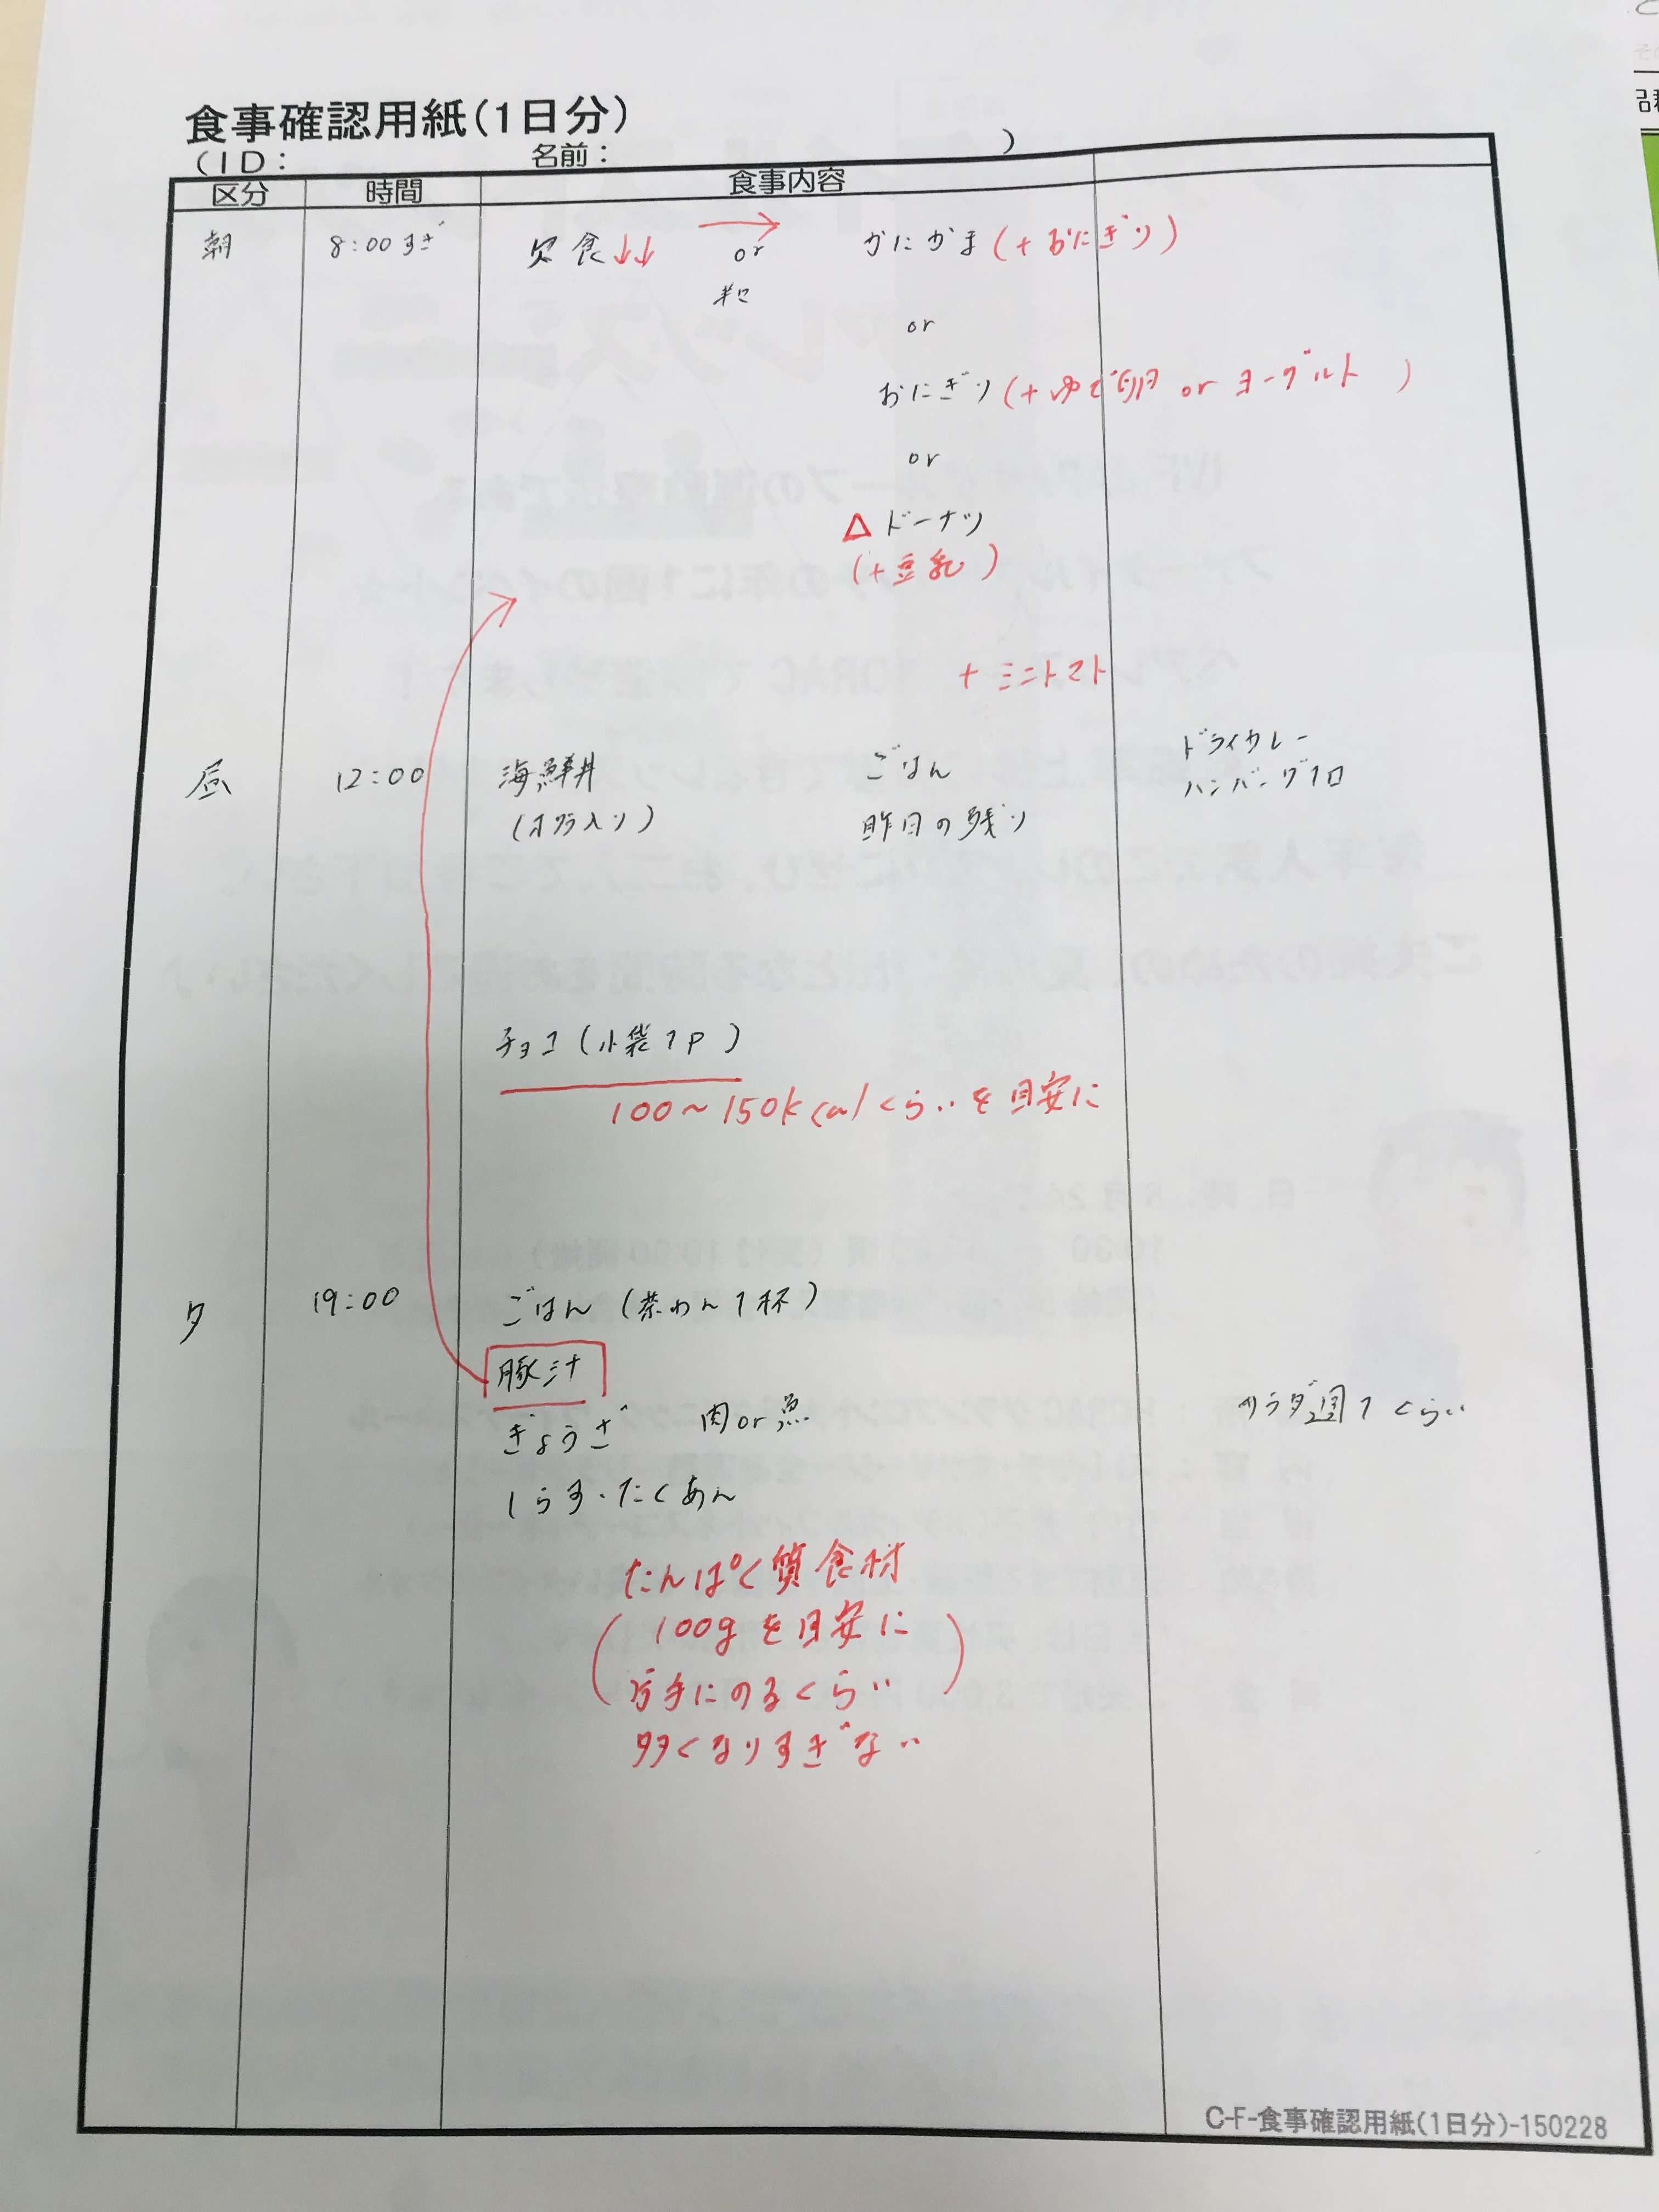 食事確認用紙(1日分)
(ID: 名前: )
区分 時間 食事内容
朝 8:00すぎ 欠食↓↓ → or かにかま (+おにぎり)
or
おにぎり (+ゆで卵 or ヨーグルト )
or
△ ドーナツ
(+豆乳)
+ミニトマト
昼 12:00 海鮮丼 ごはん ドライカレー
(オクラ入り) 昨日の残り ハンバーグ1コ
チョコ(小袋1P)
100~150kcalくらいを目安に
夕 19:00 ごはん(茶わん1杯)
豚汁
ぎょうざ 肉or魚 サラダ週1くらい
しらす・たくあん
たんぱく質食材
(100gを目安に
片手にのるくらい)
多くなりすぎない
C-F-食事確認用紙(1日分)-150228